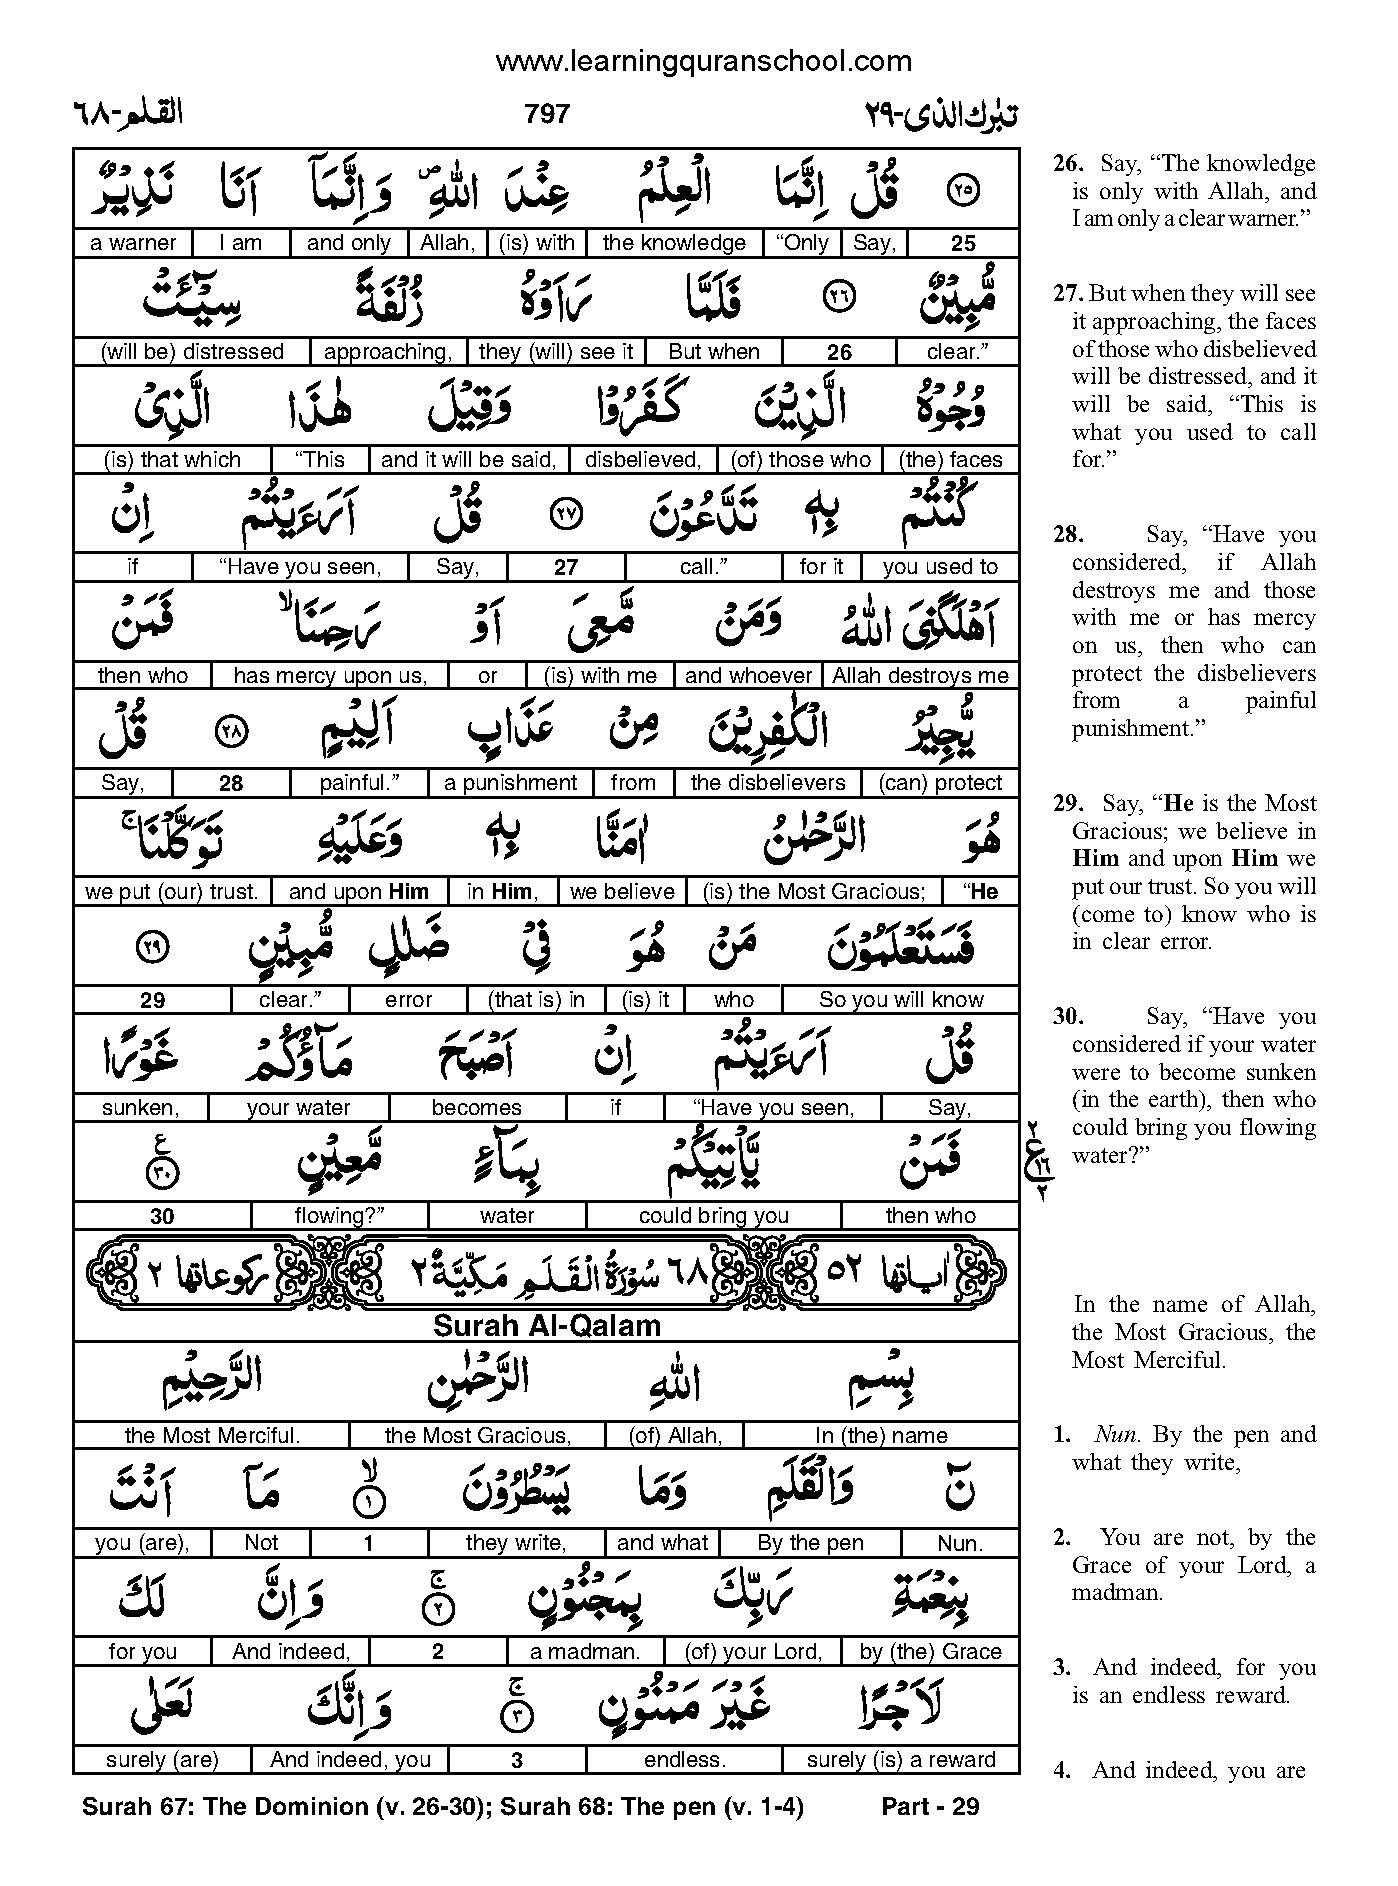 www.learningquranschool.com
القلم-٦٨ 797 تبٰرك الذى-٢٩
٢٥ قُلْ اِنَّمَا الْعِلْمُ عِنْدَ اللّٰهِ ۪ وَ اِنَّمَاۤ اَنَا نَذِيْرٌ
a warner I am and only Allah, (is) with the knowledge “Only Say, 25
مُّبِيْنٌ ٢٦ فَلَمَّا رَاَوْهُ زُلْفَةً سِيْٓـَٔتْ
(will be) distressed approaching, they (will) see it But when 26 clear.”
وُجُوْهُ الَّذِيْنَ كَفَرُوْا وَقِيْلَ هٰذَا الَّذِيْ
(is) that which “This and it will be said, disbelieved, (of) those who (the) faces
كُنْتُمْ بِهٖ تَدَّعُوْنَ ٢٧ قُلْ اَرَءَيْتُمْ اِنْ
if “Have you seen, Say, 27 call.” for it you used to
اَهْلَكَنِيَ اللّٰهُ وَمَنْ مَّعِيَ اَوْ رَحِمَنَا ۙ فَمَنْ
then who has mercy upon us, or (is) with me and whoever Allah destroys me
يُّجِيْرُ الْكٰفِرِيْنَ مِنْ عَذَابٍ اَلِيْمٍ ٢٨ قُلْ
Say, 28 painful.” a punishment from the disbelievers (can) protect
هُوَ الرَّحْمٰنُ اٰمَنَّا بِهٖ وَعَلَيْهِ تَوَكَّلْنَا ۚ
we put (our) trust. and upon Him in Him, we believe (is) the Most Gracious; “He
فَسَتَعْلَمُوْنَ مَنْ هُوَ فِيْ ضَلٰلٍ مُّبِيْنٍ ٢٩
29 clear.” error (that is) in (is) it who So you will know
قُلْ اَرَءَيْتُمْ اِنْ اَصْبَحَ مَآؤُكُمْ غَوْرًا
sunken, your water becomes if “Have you seen, Say,
فَمَنْ يَّاْتِيْكُمْ بِمَآءٍ مَّعِيْنٍ ٣٠ ع
30 flowing?” water could bring you then who
٢ ع ١٦ ٢
اٰياتها ٥٢ ٦٨ سُوْرَةُ الْقَلَمِ مَكِّيَّةٌ ٢ ركوعاتها ٢
Surah Al-Qalam
بِسْمِ اللّٰهِ الرَّحْمٰنِ الرَّحِيْمِ
the Most Merciful. the Most Gracious, (of) Allah, In (the) name
نٓ وَالْقَلَمِ وَمَا يَسْطُرُوْنَ ١ ۙ مَاۤ اَنْتَ
you (are), Not 1 they write, and what By the pen Nun.
بِنِعْمَةِ رَبِّكَ بِمَجْنُوْنٍ ٢ ۚ وَ اِنَّ لَكَ
for you And indeed, 2 a madman. (of) your Lord, by (the) Grace
لَاَجْرًا غَيْرَ مَمْنُوْنٍ ٣ ۚ وَ اِنَّكَ لَعَلٰى
surely (are) And indeed, you 3 endless. surely (is) a reward
26. Say, “The knowledge
is only with Allah, and
I am only a clear warner.”
27. But when they will see
it approaching, the faces
of those who disbelieved
will be distressed, and it
will be said, “This is
what you used to call
for.”
28. Say, “Have you
considered, if Allah
destroys me and those
with me or has mercy
on us, then who can
protect the disbelievers
from a painful
punishment.”
29. Say, “He is the Most
Gracious; we believe in
Him and upon Him we
put our trust. So you will
(come to) know who is
in clear error.
30. Say, “Have you
considered if your water
were to become sunken
(in the earth), then who
could bring you flowing
water?”
In the name of Allah,
the Most Gracious, the
Most Merciful.
1. Nun. By the pen and
what they write,
2. You are not, by the
Grace of your Lord, a
madman.
3. And indeed, for you
is an endless reward.
4. And indeed, you are
Surah 67: The Dominion (v. 26-30); Surah 68: The pen (v. 1-4) Part - 29